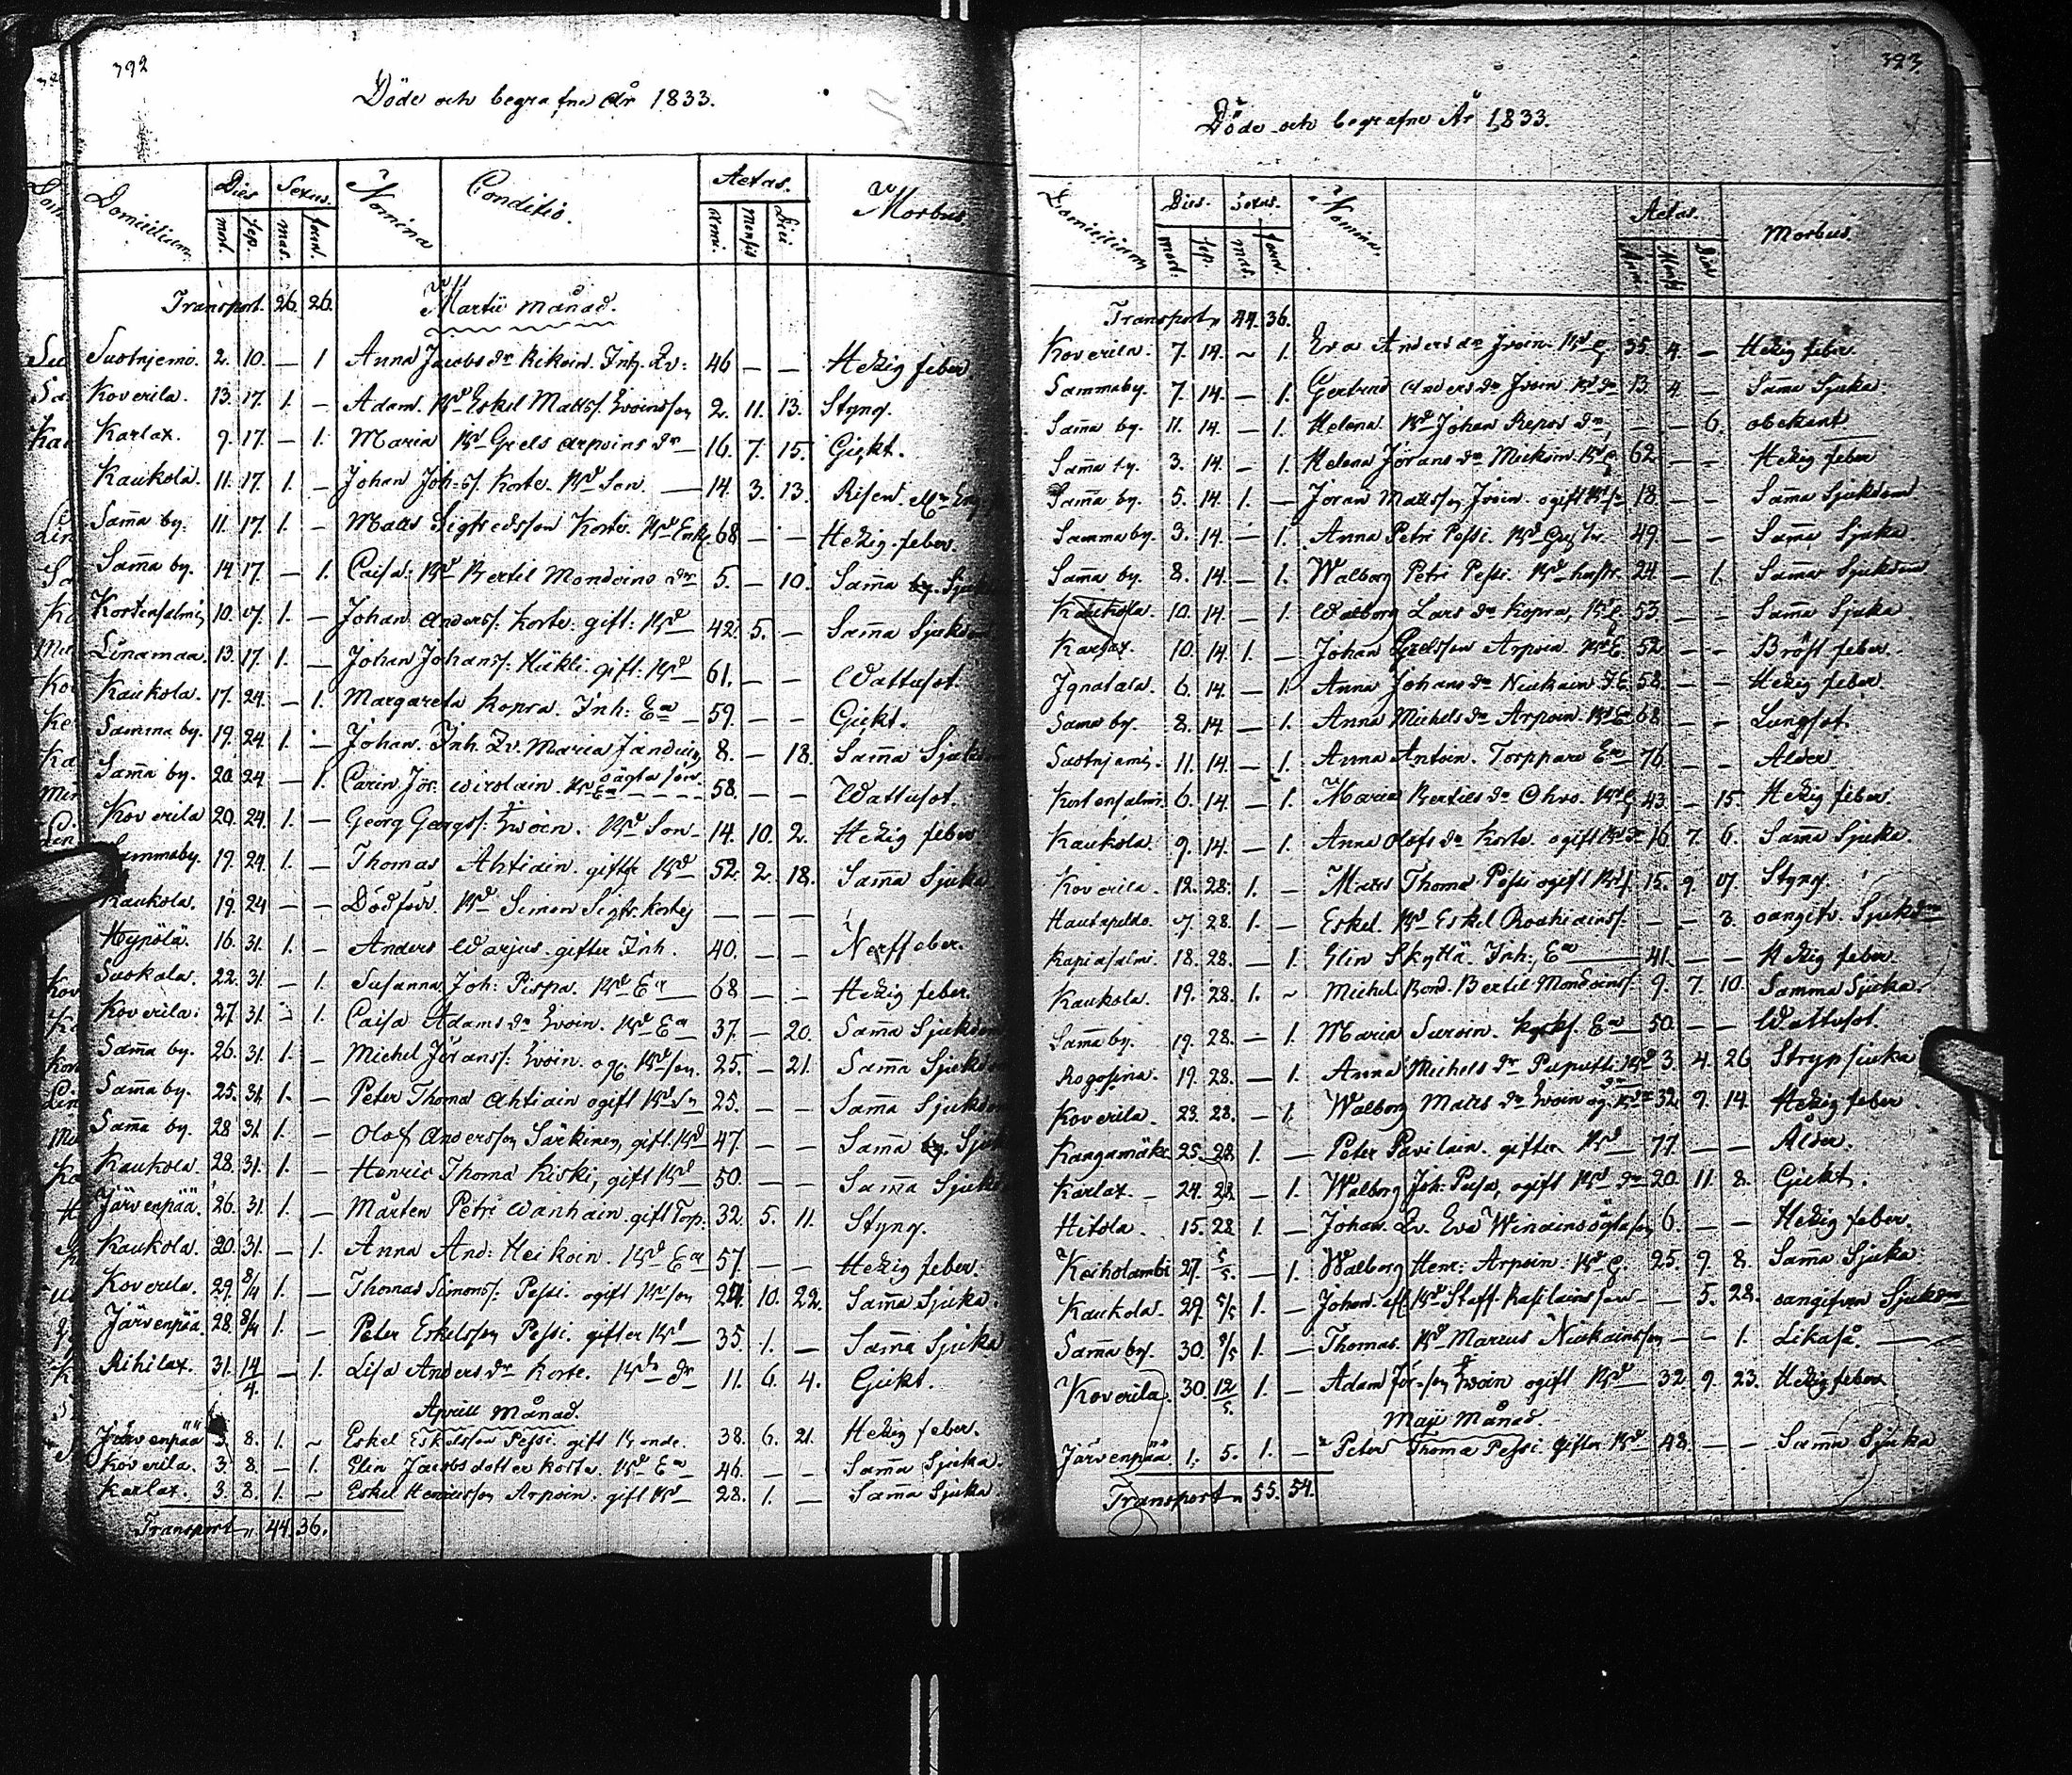 392
Döde och begrafne År 1833.
Domicilium. Dies Sexus. Nomina Conditio. Aetas. Morbus.
mort. sep. mas. foem. Anni. Mensis Dies
Transport. 26. 26. Martii Månad.
Suotnjemi. 2. 10. — 1 Anna Jacobs dr Kikoin. Inh. 46 — — Hetzig feber
Koverila. 13. 17. 1. — Adam. Bd Eskel Matts. Ivoins son 2. 11. 13. Styng.
Karlax. 9. 17. — 1. Maria Bd Grels Arpoins dr — 16. 7. 15. Gickt.
Kaukola. 11. 17. 1. — Johan Joh: s. Korte. Bd Son. — 14. 3. 13. Risen.
Sam̄a by. 11. 17. 1. — Matts Sigfredsson Korte. Bd Enkl. 68 — — Hetzig feber.
Sam̄a by. 14. 17 — 1. Caisa. Bd Bertil Mondoins dr 5. — 10. Sam̄a by. Sjuk
Kortensalmi 10. 17. 1. — Johan Anders. Korte: gift: Bd — 42. 5. — Sam̄a Sjukdom
Linamaa. 13. 17. 1. — Johan Johans: Häkli. gift: Bd 61. — — Wattusot.
Kaukola. 17. 24. — 1. Margareta Kopra. Inh: Ea — 59. — — Gickt.
Samma by. 19. 24. 1. — Johan. Inh. Maria 8. — 18. Sam̄a Sjukdom
Sam̄a by. 20. 24 — 1. Carin Jör. Wirolain. Bd Ea oägta son 58. — — Wattusot.
Koverila 20. 24. 1. — Georg Georgs: Ivoin. Bd Son — 14. 10. 2. Hetzig feber
Sammaby. 19. 24. 1. — Thomas Ahtiain. gifter Bd 52. 2. 18. Sam̄a Sjuka
Kaukola. 19. 24 — — Dödför. Bd Simon Sigfr. Kortes — — —
Hypölä. 16. 31. 1. — Anders Warjus. gifter Inh. 40. — — Nerffeber.
Suokala. 22. 31. — 1. Susanna Joh: Pispa. Bd Ea — 68 — — Hetzig feber.
Koverila: 27. 31. — 1. Caisa Adams dr Ivoin. Bd Ea 37. — 20. Sam̄a Sjukdom
Sam̄a by. 26. 31. 1. — Michel Jörans: Ivoin. og. Bd son. 25. — 21. Sam̄a Sjukdom
Sam̄a by. 25. 31. 1. — Peter Thoma Ahtiain ogift Bd Sn 25. — — Sam̄a Sjukdom
Sam̄a by. 28 31. 1. — Olof Andersson Särkinen, gift. Bd — 47 — — Sam̄a by. Sjuk
Kaukola. 28. 31. 1. — Henric Thoma Kiski, gift Bd — 50. — — Sam̄a Sjuk
Järvenpää. 26. 31. 1. — Mårten Petri Wanhain. gift Torp. 32. 5. 11. Styng.
Kaukola. 20. 31. — 1. Anna And: Heikoin. Bd Ea 57. — — Hetzig feber.
Koverila. 29. 8/4 1. — Thomas Simons: Pessi. ogift Bd son 24. 10. 22. Sam̄a Sjuka.
Järvenpää. 28. 8/4 1. — Peter Eskelsson Pessi. gifter Bd 35. 1. — Sam̄a Sjuka
Rihilax. 31. 14/4. — 1. Lisa Anders. dr Korte. Bds dr 11. 6. 4. Gickt.
Aprill Månad.
Järvenpää 3. 8. 1. ~ Eskel Eskelsson Pessi. gift Bonde. 38. 6. 21. Hetzig feber.
Koverila. 3. 8. — 1. Elin Jacobs dotter Korte. Bd Ea — 46. — — Sam̄a Sjuka
Karlax. 3. 8. 1. ~ Eskel Henricsson Arpoin. gift Bd — 28. 1. — Sam̄a Sjuka
Transport „ 44. 36.
393
Döde och begrafne År 1833.
Domicilium Dies. Sexus. Nomina. Aetas. Morbus.
mort. sep. mas. foem Anni Mens. Dies
Transport „ 44. 36.
Koverila. 7. 14. ~ 1. Eva Anders dr Ivoin. Bd 35. 4. — Hetzig feber
Sammaby. 7. 14. — 1. Gertrud Anders dr Ivoin Bd dr 13 4 — Sama Sjuka
Sam̄a by. 11. 14. — 1. Helena. Bd Johan Repos dr, — — 6. obekant
Sam̄a by. 3. 14. — 1. Helena Jörans dr Bd 62 — — Hetzig feber
Sam̄a by. 5. 14. 1. — Jöran Mattsson Ivoin. ogift Bd 18 — — Sam̄a Sjukdom
Sammaby. 3. 14. — 1. Anna Petri Pessi. Bd 49. — — Sam̄a Sjuka
Sam̄a by. 8. 14. — 1. Walborg Petri Pessi. Bd hustr. 24. — 1. Sam̄a Sjukdom
Kaukola. 10. 14. — 1. Walborg Lars dr Kopra, Bd 53. — — Sam̄a Sjuka
Karlax. 10. 14. 1. — Johan Grelsson Arpoin 52 — — Bröst feber.
Ignatala. 6. 14. — 1. Anna Johans dr Niukain 58. — — Hetzig feber.
Sama by. 8. 14 — 1. Anna Michels dr Arpoin. Bd Ea 68. — — Lungsot.
Suotnjemi. 11. 14. — 1. Anna Antoin. Torppare Ea 76. — — Ålder.
Kortensalmi. 6. 14. — 1. Maria Bertils dr Ohvo. Bd 43. — 15. Hetzig feber.
Kaukola. 9. 14. — 1. Anna Olofs dr Korte. ogift Bd dr 16 7. 6. Sam̄a Sjuka.
Koverila. 12. 28. 1. — Matts Thoma Pessi ogift Bd 15. 9. 17. Styng.
Hautapuldo. 7. 28. 1. — Eskel. Bd Eskel — — 3. oangifv. Sjukdm
Kapiasalmi. 18. 28. — 1. Elin Skyttä. Inh; Ea 41. — — Hetzig feber
Kaukola. 19. 28. 1. ~ Michel. Bond. Bertil Mondoins. 9. 7. 10. Samma Sjuka.
Sam̄a by. 19. 28. — 1. Maria Suroin. Ea 50. — — Wattusot.
Rogosina. 19. 28. — 1. Anna Michels dr Bd 3. 4. 26 Strypsjuka
Koverila. 23. 28. — 1. Walborg Matts dr Ivoin og. Bd dr 32. 9. 14. Hetzig feber
Kangamäki. 25. 28. 1. — Peter Pavilain. gifter Bd 77. — — Ålder.
Karlax. — 24. 28. — 1. Walborg Joh: ogift Bd dr 20. 11. 8. Gickt.
Hitola. 15. 28. 1. — Johan. Eva Winoins oägta son 6. — — Hetzig feber.
Keiholambi 27 5/5. — 1. Walborg Henr: Arpoin. Bd 25. 9. 8. Sam̄a Sjuka
Kaukola. 29. 5/5 1. — Johan. Bd Staff. Rasilains son — 5. 28. oangifven Sjukdm
Sam̄a by. 30. 5/5 1. — Thomas. Bd Marcus Niukains son — — 1. Likaså
Koverila. 30. 12/5. 1. — Adam Jör-son Ivoin ogift Bd 32 9. 23. Hetzig feber
Maji Månad.
Järvenpää. 1. 5. 1. — Peter Thoma Pessi. gifter Bd 48. — — Sam̄a Sjuka
Transport „ 55. 54.